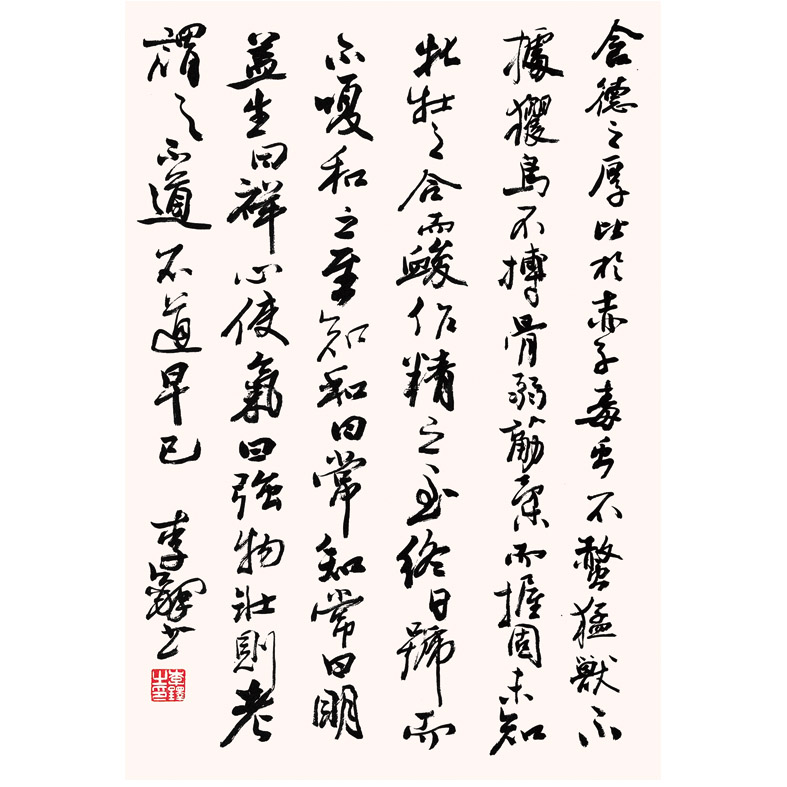 含德之厚比於赤子毒虫不螫猛獸不
據玃鳥不搏骨弱筋柔而握固未知
牝牡之合而朘作精之至終日號而
不嗄和之至知和曰常知常曰明
益生曰祥心使氣曰強物壯則老
謂之不道不道早已
李鐸書
李鐸之印